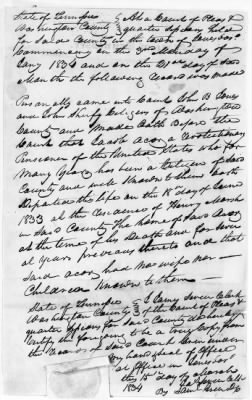 State of Tennessee } At a Court of Pleas &
Washington County } quarter Sessions held
for said County in the town of Jonesboro
Commencing on the 3rd Monday of
Jany 1834 and on the 21st day of said
Month the following record was made
Personally came into Court John B.
and John citizens of Washington
County and Made Oath before the
Court that Acor a Revolutionary
Pensioner of the United States who for
Many Years has been a citizen of said
County and well Known to them both
Departed this life on the 18 day of
1833 at the residence of Henry Marsh
in said County the home of said Acor
at the time of his Death and for sever
al years previous thereto and that
said Acor had no wife nor
Children Known to them
State of Tennessee } I James Sevier Clerk
Washington County } of the Court of Pleas &
quarter Sessions for said County do hereby
Certify the foregoing to be a true Copy from
the Records of said Court Given under
my hand & seal of Office
at Office in Jonesboro
this 15th day of March
1834 Ja Sevier Clk
By